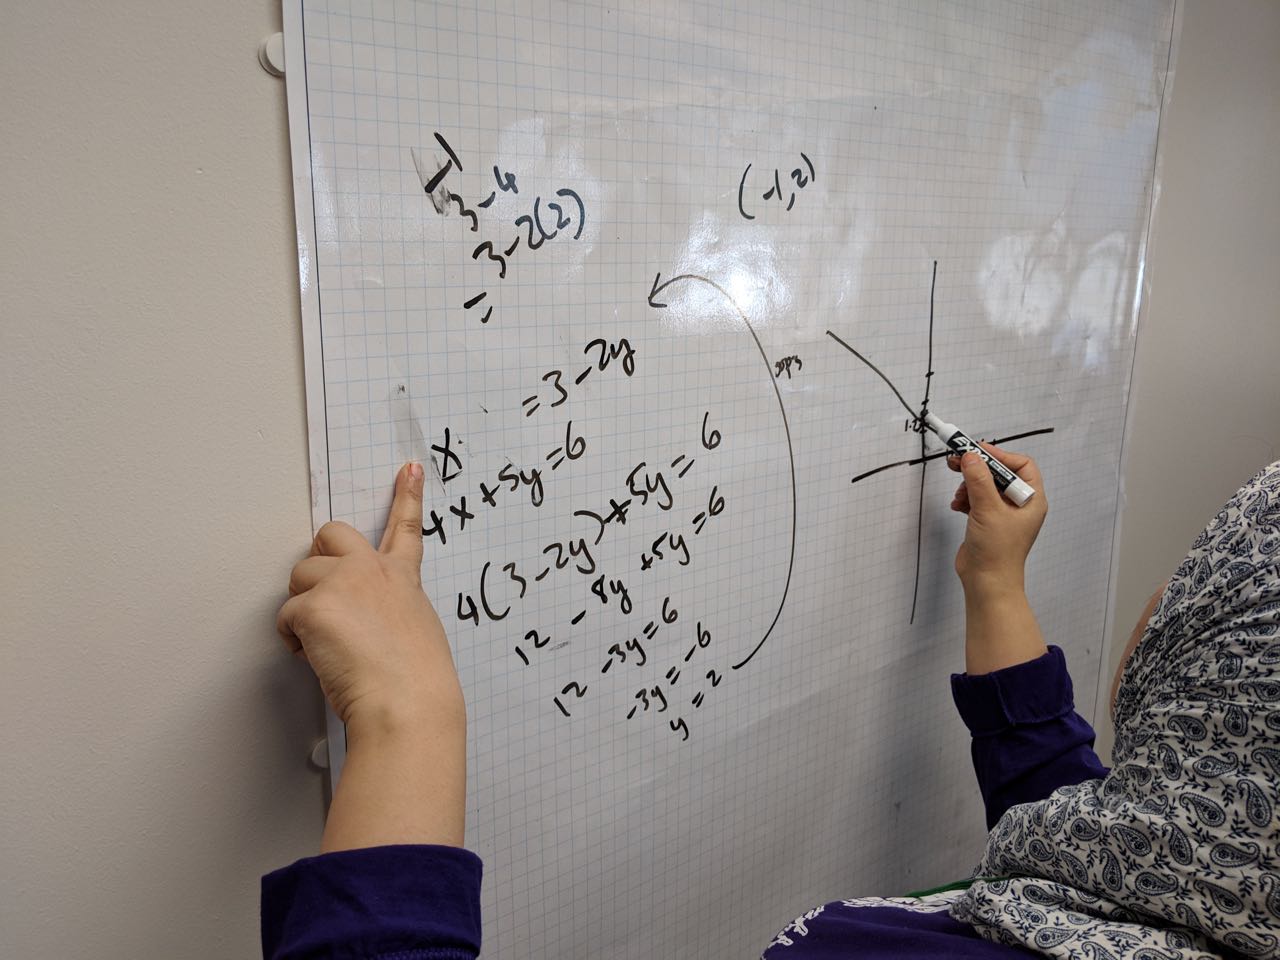 -1
3-4
3-2(2)
=
x = 3-2y
4x+5y=6
4(3-2y)+5y=6
12 - 8y +5y=6
12 -3y=6
-3y=-6
y=2
(-1,2)
1.2
EXPO